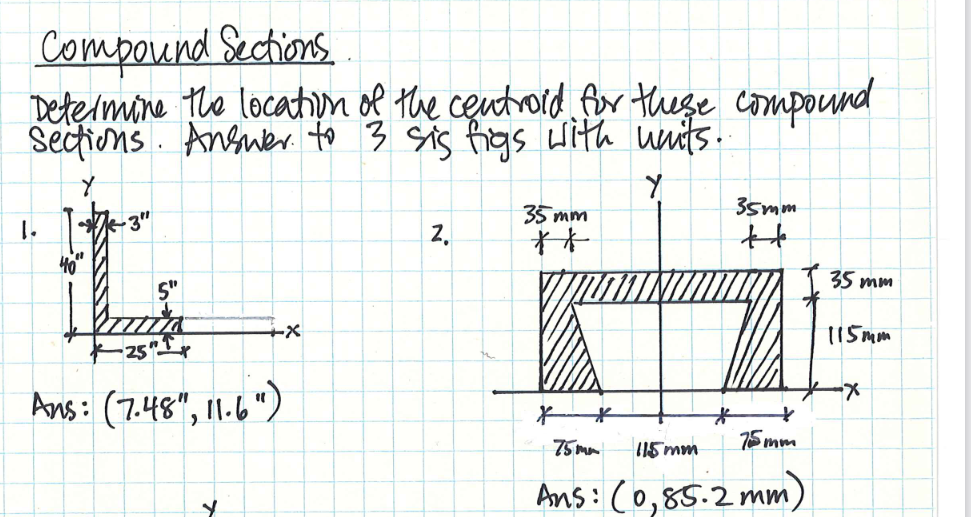 Compound Sections.
Determine the location of the centroid for these compound
sections. Answer to 3 sig figs with units.
1.
Y
3"
40"
5"
X
25"
Ans: (7.48", 11.6")
2.
Y
35 mm
35mm
35 mm
115mm
X
75mm
115mm
75mm
Ans: (0,85.2 mm)
Y